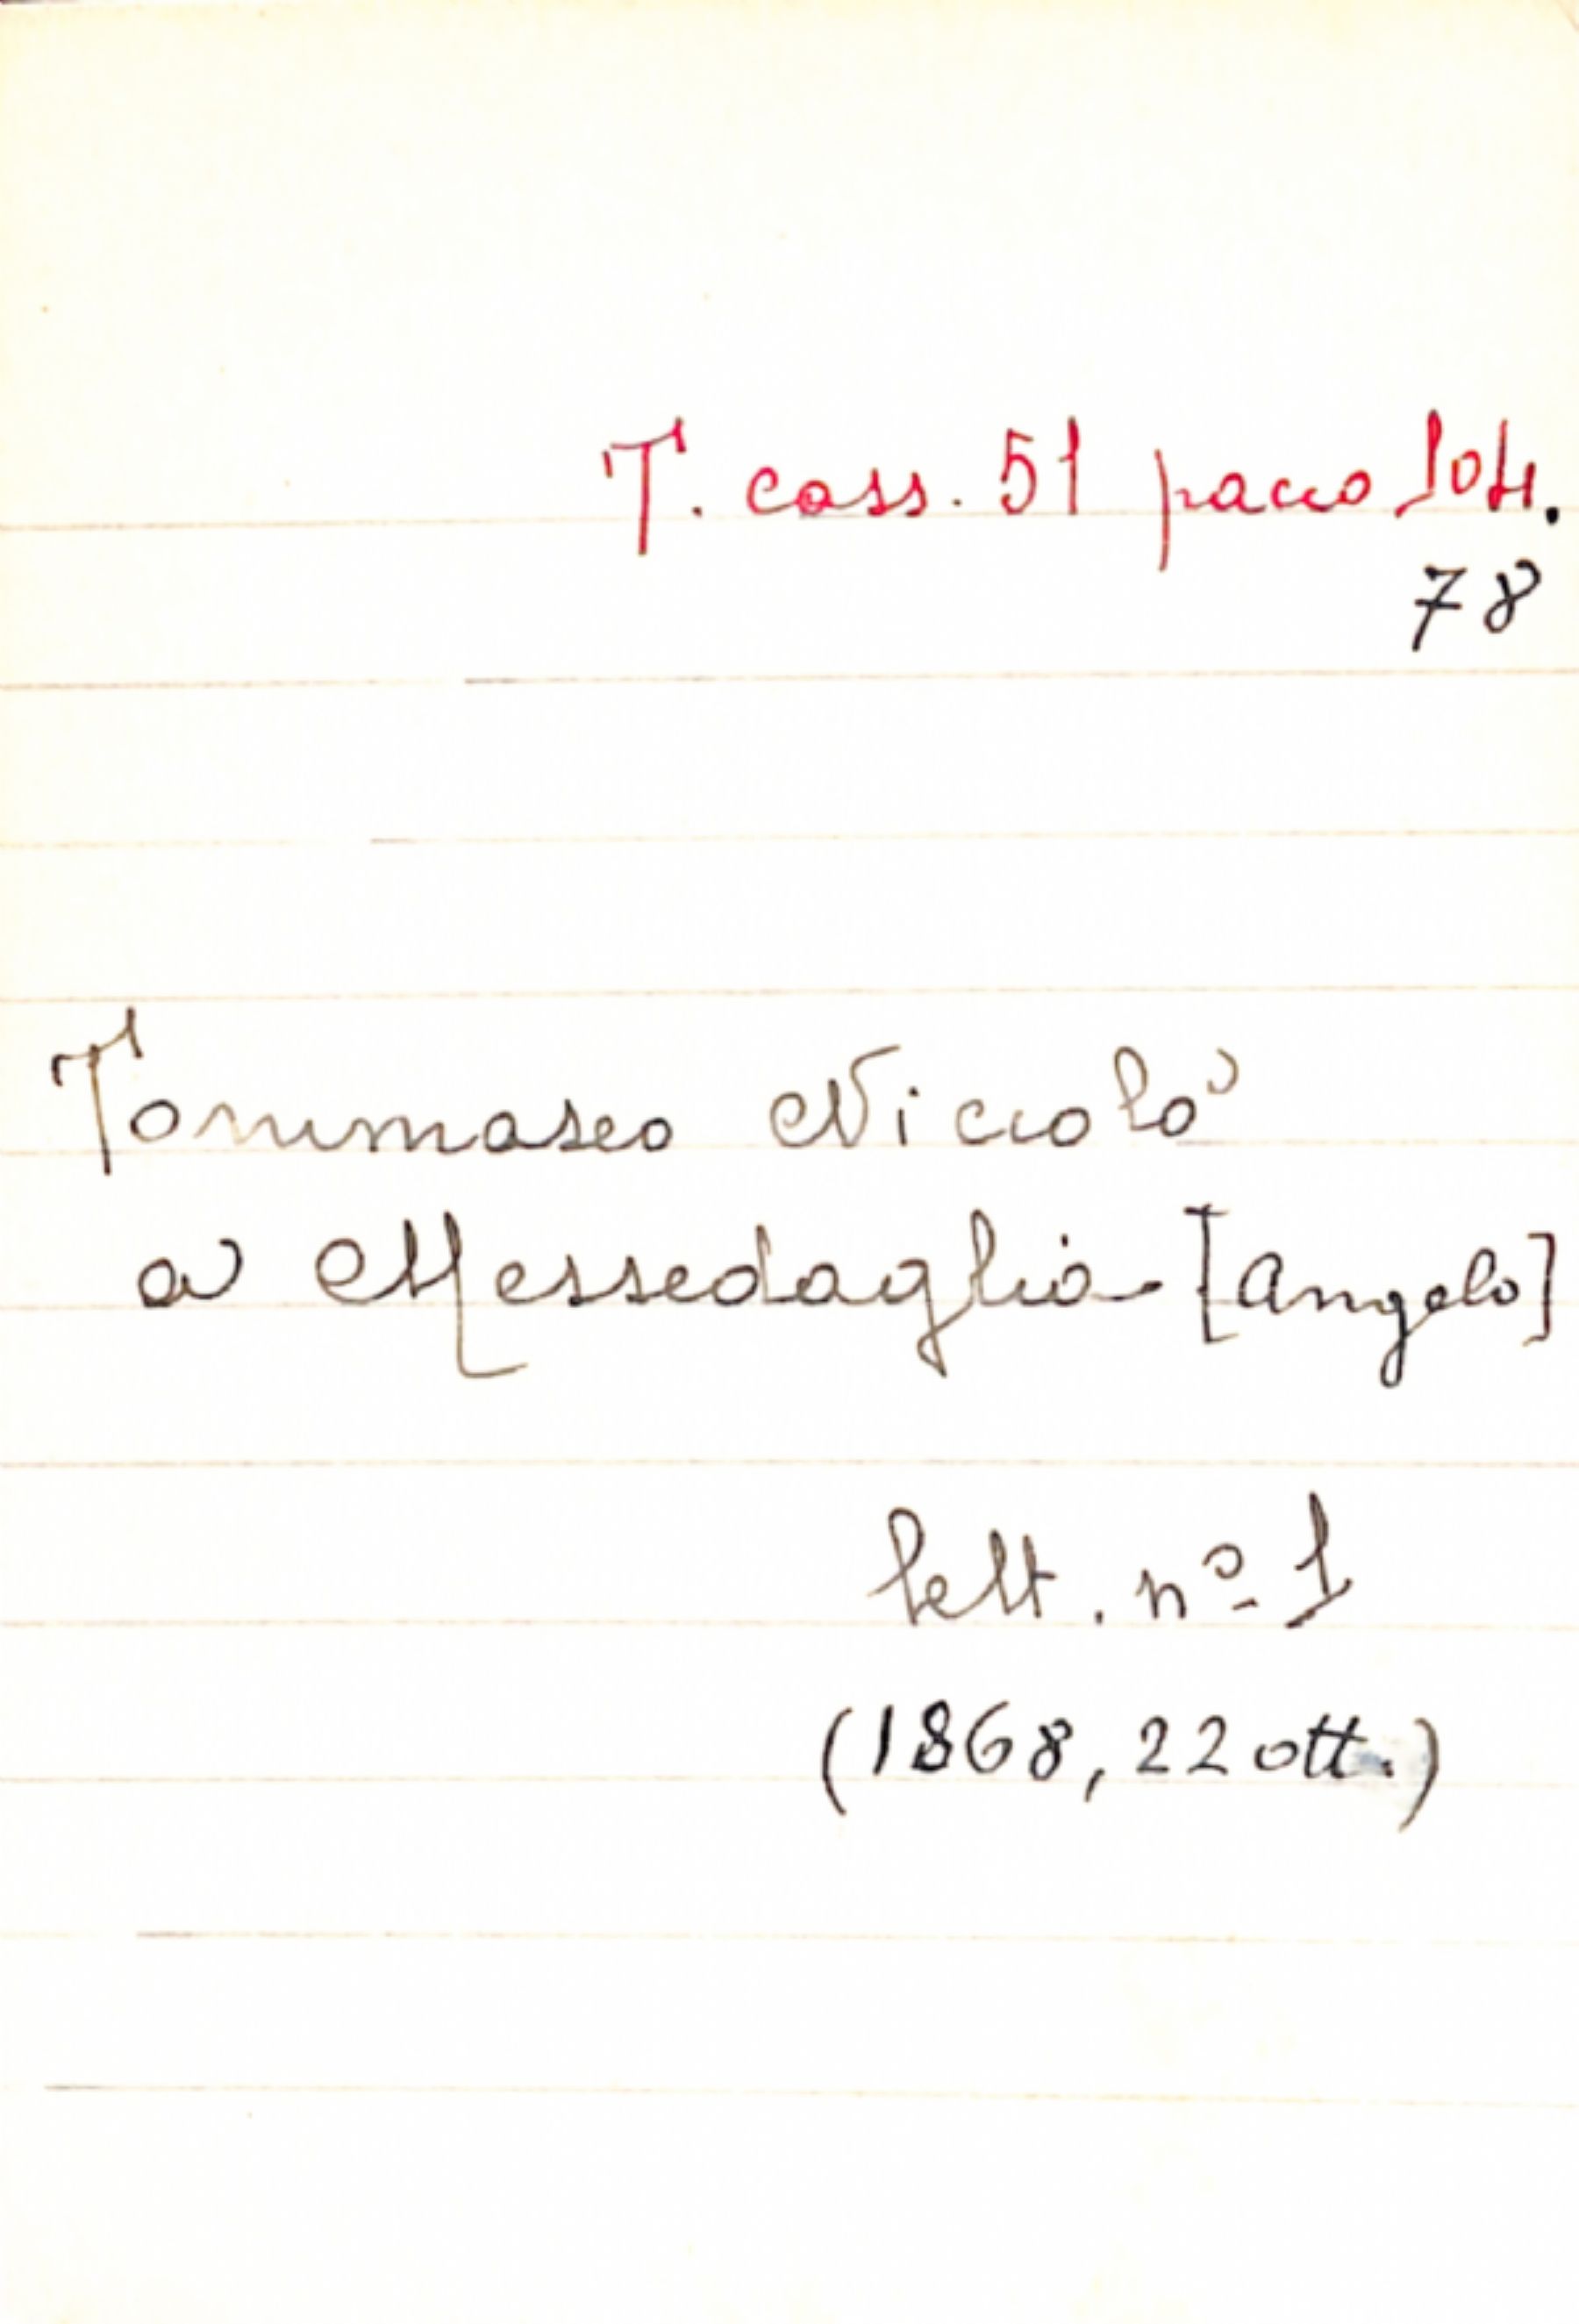 T. cass. 51 pacco 104.
78
Tommaseo Niccolò
a Messedaglia [Angelo]
lett. nº 1
(1868, 22 ott.)